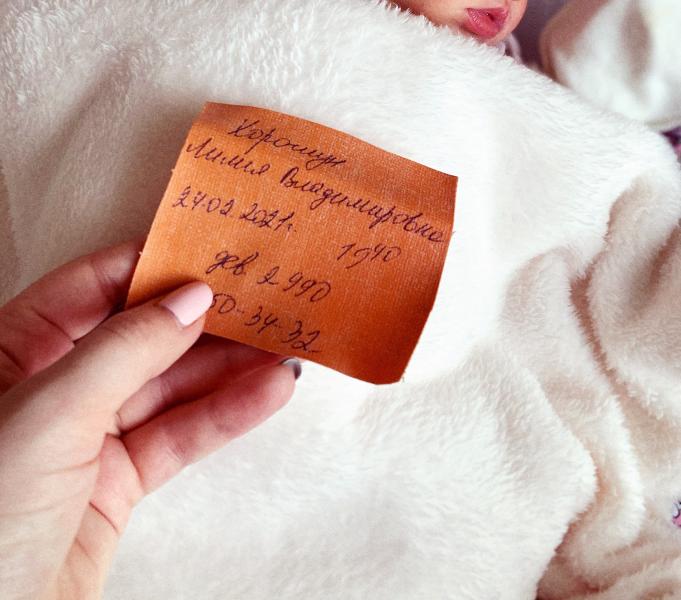 Хорошун
Лилия Владимировна
24.02.2021г. 19 40
дев 2-990
50-34-32